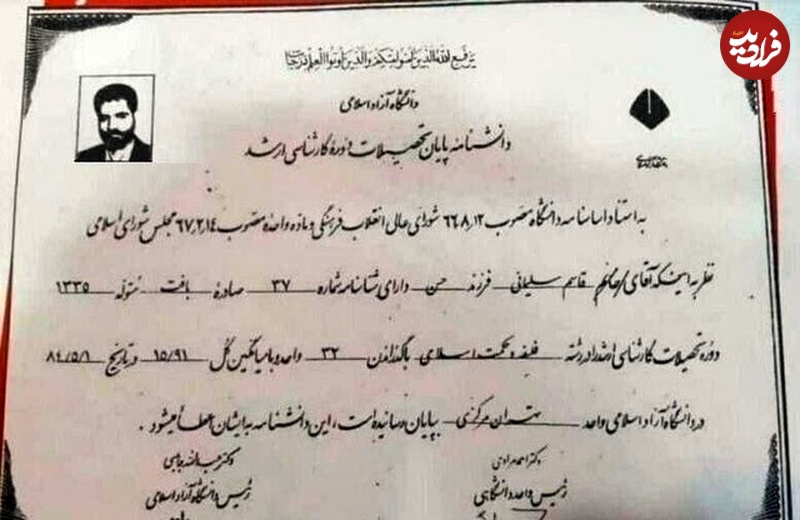 فرادید
اخبار
یرفع الله الذین آمنوا منکم والذین اوتوا العلم درجات
دانشگاه آزاد اسلامی
دانشنامه پایان تحصیلات دوره کارشناسی ارشد
به استناد اساسنامه دانشگاه مصوب ۶۶،۸،۱۲ شورای عالی انقلاب فرهنگی و ماده واحده مصوب ۶۷،۲،۱۴ مجلس شورای اسلامی
نظر به اینکه آقای/خانم قاسم سلیمانی فرزند حسن دارای شناسنامه شماره ۳۷ صادره بافت متولد ۱۳۳۵
دوره تحصیلات کارشناسی ارشد را در رشته فلسفه و حکمت اسلامی با گذراندن ۳۲ واحد و با میانگین کل ۱۵/۹۱ در تاریخ ۸۴/۵/۱
در دانشگاه آزاد اسلامی واحد تهران مرکزی بپایان رسانیده است، این دانشنامه به ایشان اعطا میشود .
دکتر عبدالله جاسبی
رئیس دانشگاه آزاد اسلامی
دکتر احمد مرادی
رئیس واحد دانشگاهی